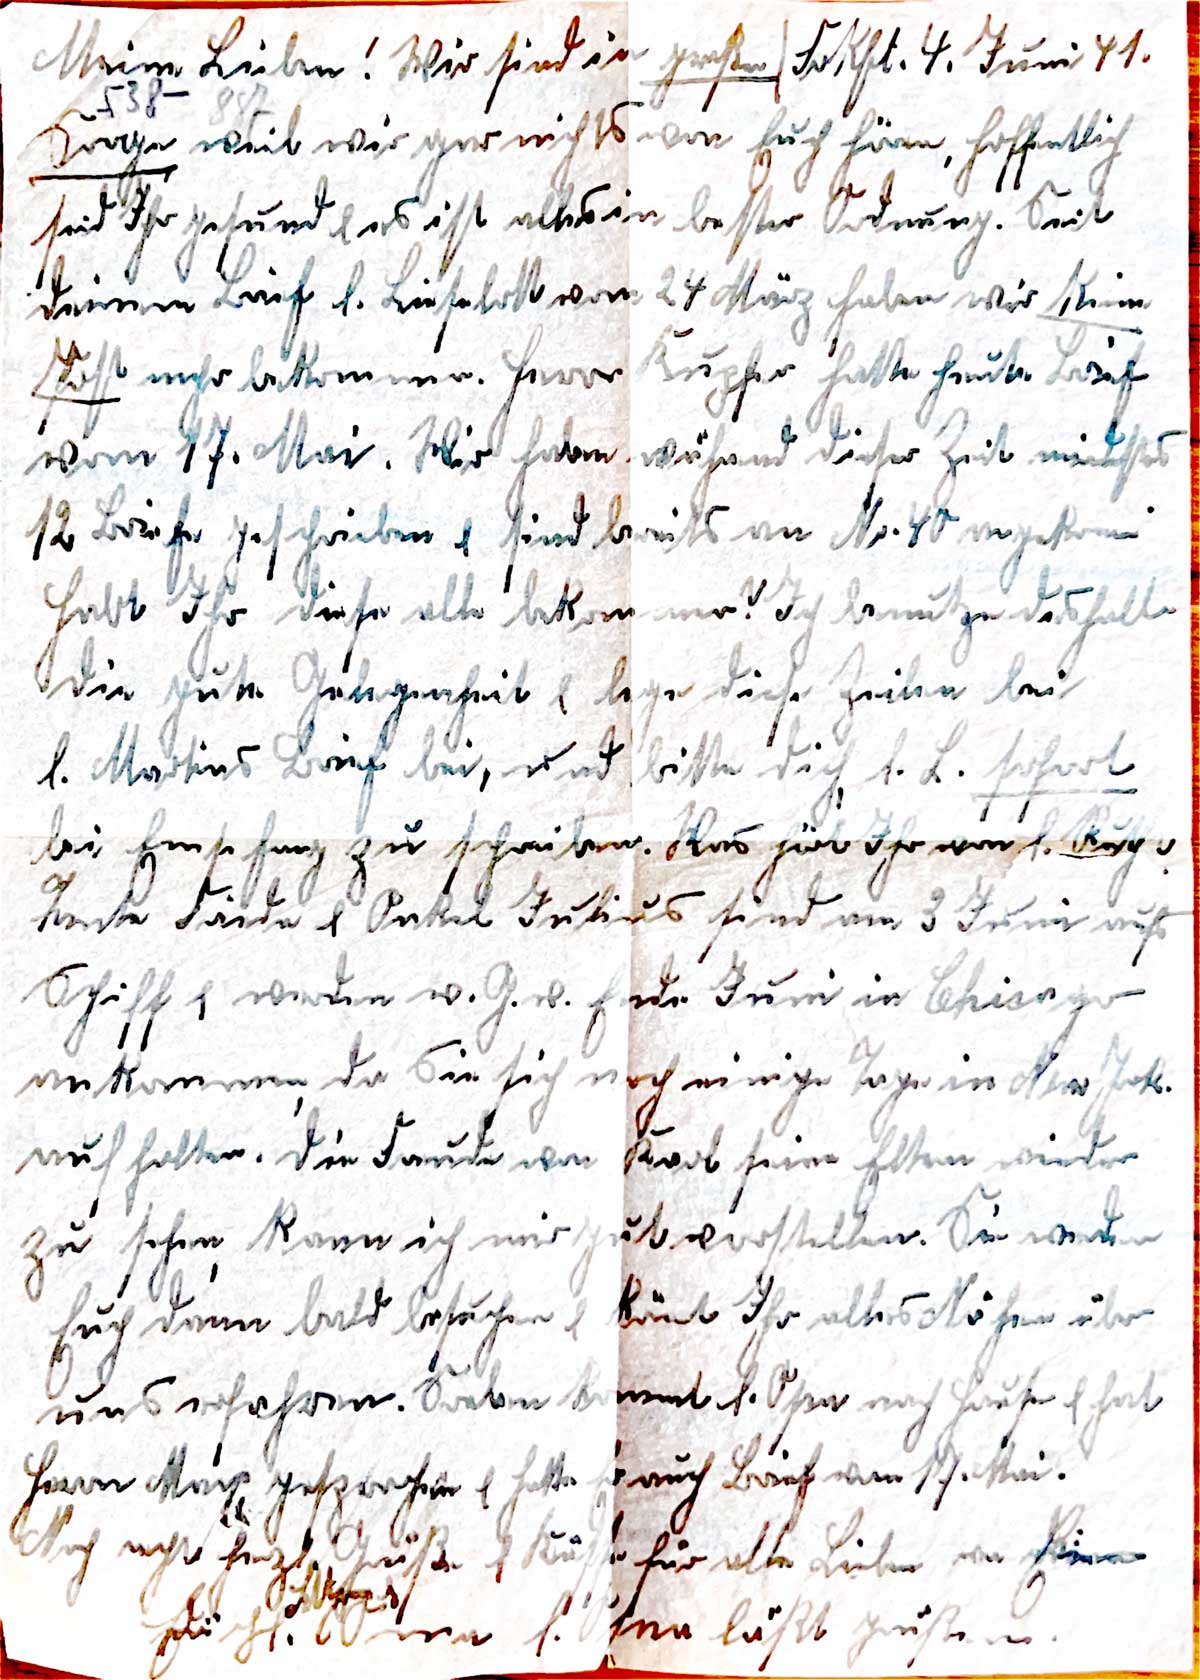 Meine Lieben! Wir sind in großer | Frkft. 4. Juni 41.
538-  887
Sorge weil wir gar nichts von Euch hören, hoffentlich
seid Ihr gesund & es ist alles in bester Ordnung. Seit
deinem Brief l. Liselotte vom 24 März haben wir keine
Post mehr bekommen. Herr Kupfer hatte heute Brief
vom 17. Mai. Wir haben während dieser Zeit mindestens
12 Briefe geschrieben & sind bereits an No. 40 angekom̅
Habt Ihr diese alle bekommen? Ich benutze deshalb
die gute Gelegenheit & lege diese Zeilen bei
l. Martins Brief bei, und bitte dich, l. L. sofort
bei Empfang zu schreiben. Was hört Ihr von l. Ruth?
Tante Frieda & Onkel Julius sind am 3 Juni aufs
Schiff & werden w. G. w. Ende Juni in Chicago
ankommen, da Sie sich noch einige Tage in New York
aufhalten. Die Freude von Karl seine Eltern wieder
zu sehen, kann ich mir gut vorstellen. Sie werden
Euch dann bald besuchen & könnt Ihr alles Nähere über
uns erfahren. Soeben kommt l. Opa nach Hause & hat
Herrn May gesprochen & hatte er auch Brief vom 17. Mai.
Noch recht herzl. Grüße & Küsse für alle Lieben von
Oma l. Opa läßt grüßen.